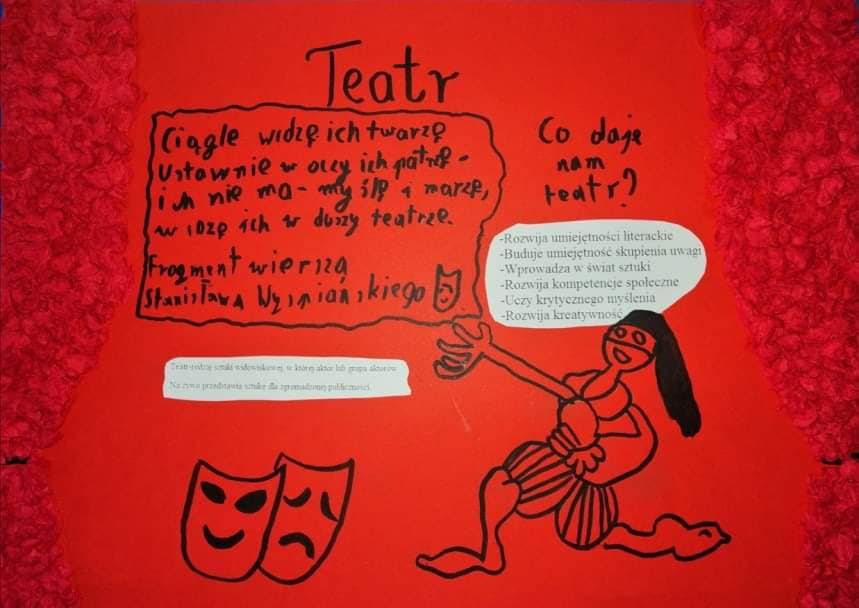 Teatr
Ciągle widzę ich twarze
Ustawnie w oczy ich patrzę -
ich nie ma - myślę i marzę,
widzę ich w duszy teatrze.
Fragment wiersza
Stanisława Wyspiańskiego
Co daje
nam
teatr?
-Rozwija umiejętności literackie
-Buduje umiejętność skupienia uwagi
-Wprowadza w świat sztuki
-Rozwija kompetencje społeczne
-Uczy krytycznego myślenia
-Rozwija kreatywność
Teatr-rodzaj sztuki widowiskowej, w której aktor lub grupa aktorów
Na żywo przedstawia sztukę dla zgromadzonej publiczności.